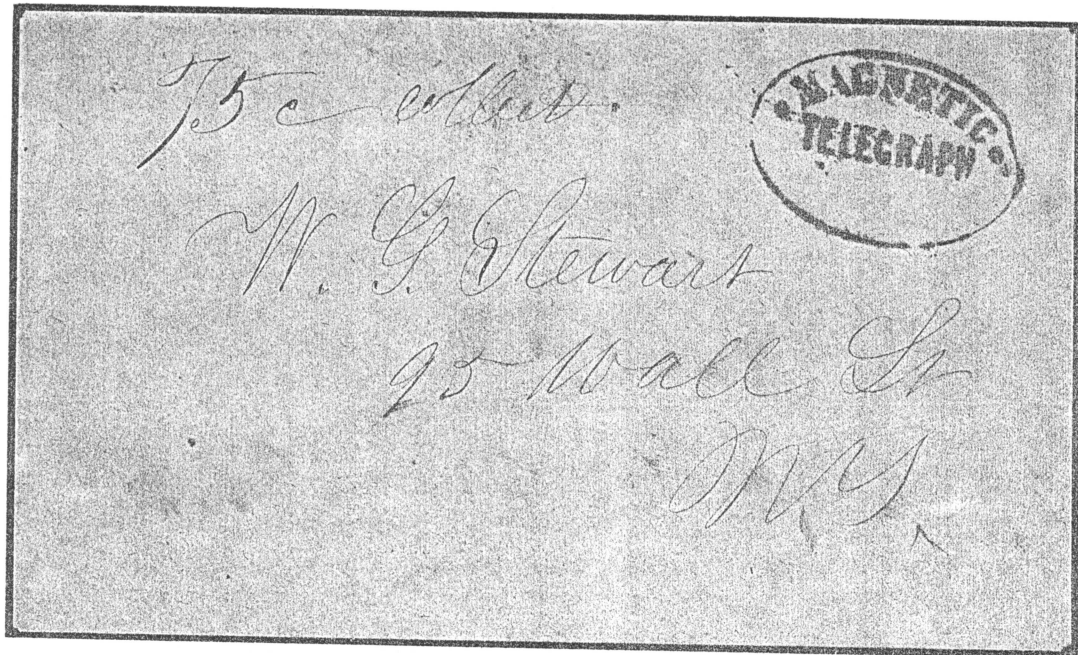 75c collect.
MAGNETIC
TELEGRAPH
W. G. Stewart
95 Wall St
N.Y.